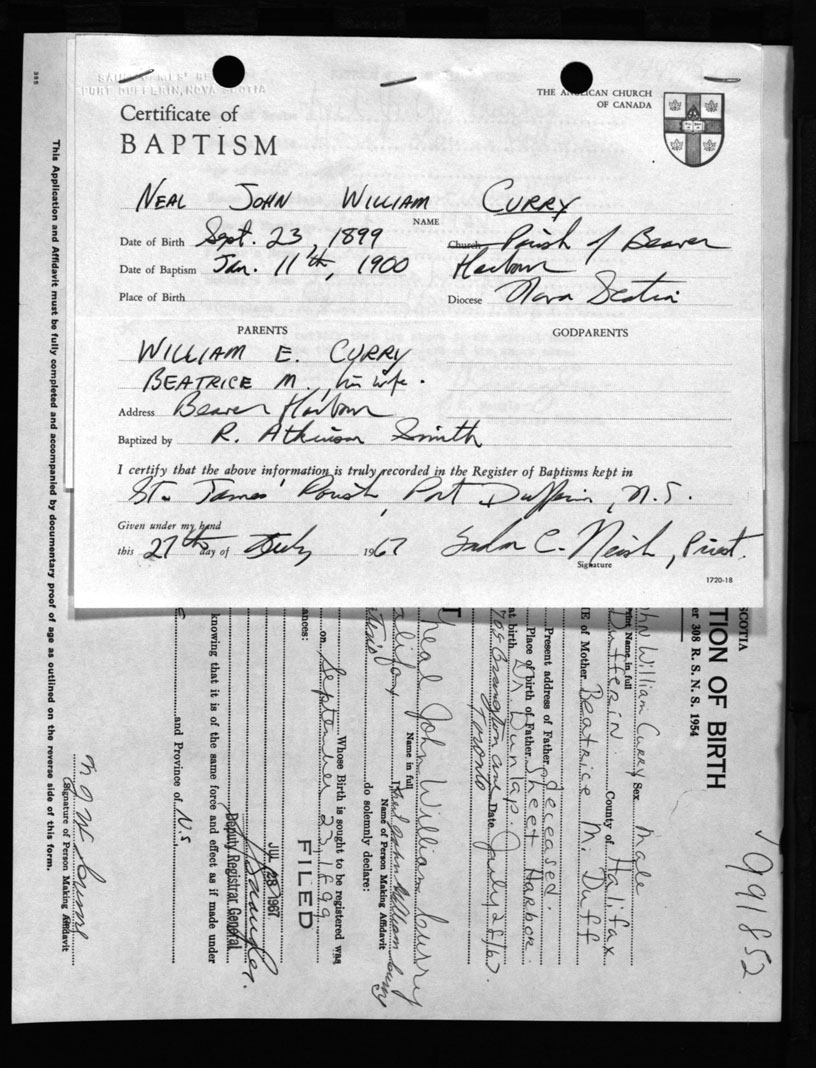 SAINT JAMES' RE
PORT DUFFERIN, NOVA SCOTIA
THE ANGLICAN CHURCH
OF CANADA
Certificate of
BAPTISM
NEAL JOHN WILLIAM CURRY
NAME
Date of Birth Sept. 23, 1899
Church Parish of Beaver
Date of Baptism Jan. 11th, 1900
Harbour
Place of Birth
Diocese Nova Scotia
PARENTS
GODPARENTS
WILLIAM E. CURRY
BEATRICE M., his wife.
Address Beaver Harbour
Baptized by R. Atkinson Smith
I certify that the above information is truly recorded in the Register of Baptisms kept in
St. James' Parish, Port Dufferin, N.S.
Given under my hand
this 27th day of July 1967
C. Neish, Priest.
Signature
1720-18
365
This Application and Affidavit must be fully completed and accompanied by documentary proof of age as outlined on the reverse side of this form.
SCOTIA
TION OF BIRTH
er 308 R. S. N. S. 1954
991852
ohn William Curry Sex Male
Print Name in full
Dufferin County of Halifax
E of Mother Beatrice M. Duff
Present address of Father deceased.
Place of birth of Father Sheet Harbor
at birth Dr. Dunlap.
Date July 28/67.
Toronto
Neal John William Curry
Name in full
I, Neal John William Curry
Name of Person Making Affidavit
alifax
do solemnly declare:
Whose Birth is sought to be registered was
on September 23 1899
ances:
FILED
JUL 28 1967
Deputy Registrar General
knowing that it is of the same force and effect as if made under
and Province of N.S
(Signature of Person Making Affidavit